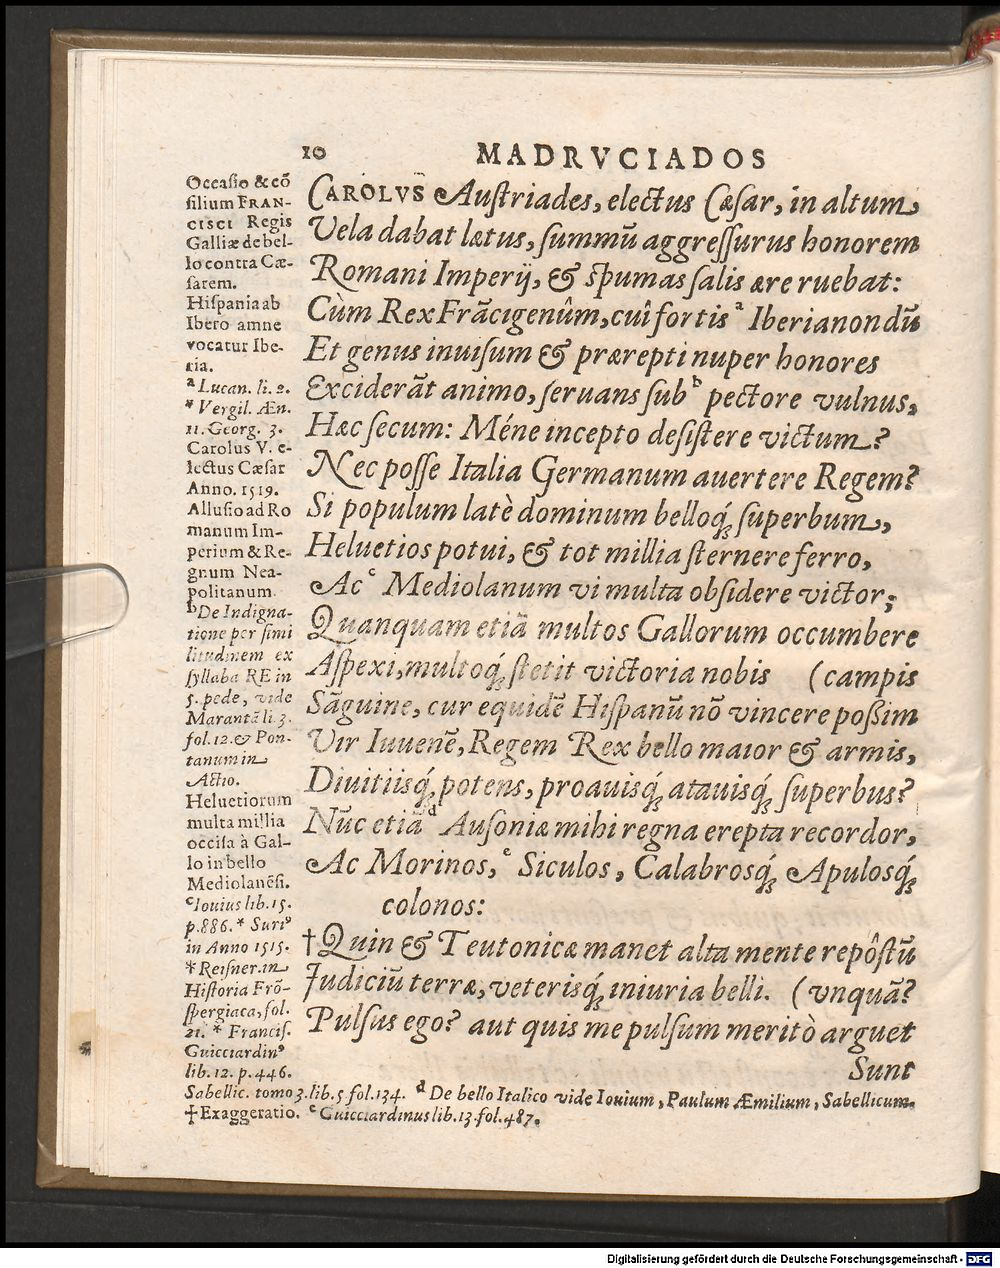 10 MADRVCIADOS
Occasio & cõ
silium FRAN-
CISCI Regis
Galliæ de bel-
lo contra Cæ-
sarem.
Hispania ab
Ibero amne
vocatur Ibe-
ria.
a Lucan. li. 2.
* Vergil. Æn.
11. Georg. 3.
Carolus V. e-
lectus Cæsar
Anno. 1519.
Allusio ad Ro
manum Im-
perium & Re-
gnum Nea-
politanum
b De Indigna-
tione per simi
litudinem ex
syllaba RE in
5. pede, vide
Marantã li. 3.
fol. 12. & Pon-
tanum in
Actio.
Heluetiorum
multa millia
occisa à Gal-
lo in bello
Mediolanẽsi.
c Iouius lib. 15.
p. 886. * Suriꝰ
in Anno 1515.
* Reisner. in
Historia Frõ-
spergiaca, fol.
21. * Francis.
Guicciardinꝰ
lib. 12. p. 446.
CAROLVS Austriades, electus Cæsar, in altum
Vela dabat lætus, summũ aggressurus honorem
Romani Imperij, & spumas salis ære ruebat:
Cùm Rex Frãcigenûm, cui fortis a Iberia nondũ
Et genus inuisum & prærepti nuper honores
Exciderãt animo, seruans sub b pectore vulnus,
Hæc secum: Méne incepto desistere victum?
Nec posse Italia Germanum auertere Regem?
Si populum latè dominum belloq́; superbum,
Heluetios potui, & tot millia sternere ferro,
Ac c Mediolanum vi multa obsidere victor;
Quanquam etiã multos Gallorum occumbere
Aspexi, multoq́; stetit victoria nobis (campis
Sãguine, cur equidẽ Hispanũ nõ vincere poßim
Vir Iuuenẽ, Regem Rex bello maior & armis,
Diuitiisq́; potens, proauisq́; atauisq́; superbus?
Nũc etiã d Ausoniæ mihi regna erepta recordor,
Ac Morinos, e Siculos, Calabrosq́; Apulosq́;
colonos:
†Quin & Teutonicæ manet alta mente repôstũ
Judiciũ terræ, veterisq́; iniuria belli. (vnquã?
Pulsus ego? aut quis me pulsum meritò arguet
Sunt
Sabellic. tomo 3. lib. 5 fol. 134. d De bello Italico vide Iouium, Paulum Æmilium, Sabellicum.
†Exaggeratio. e Guicciardinus lib. 13. fol. 487.
Digitalisierung gefördert durch die Deutsche Forschungsgemeinschaft - DFG